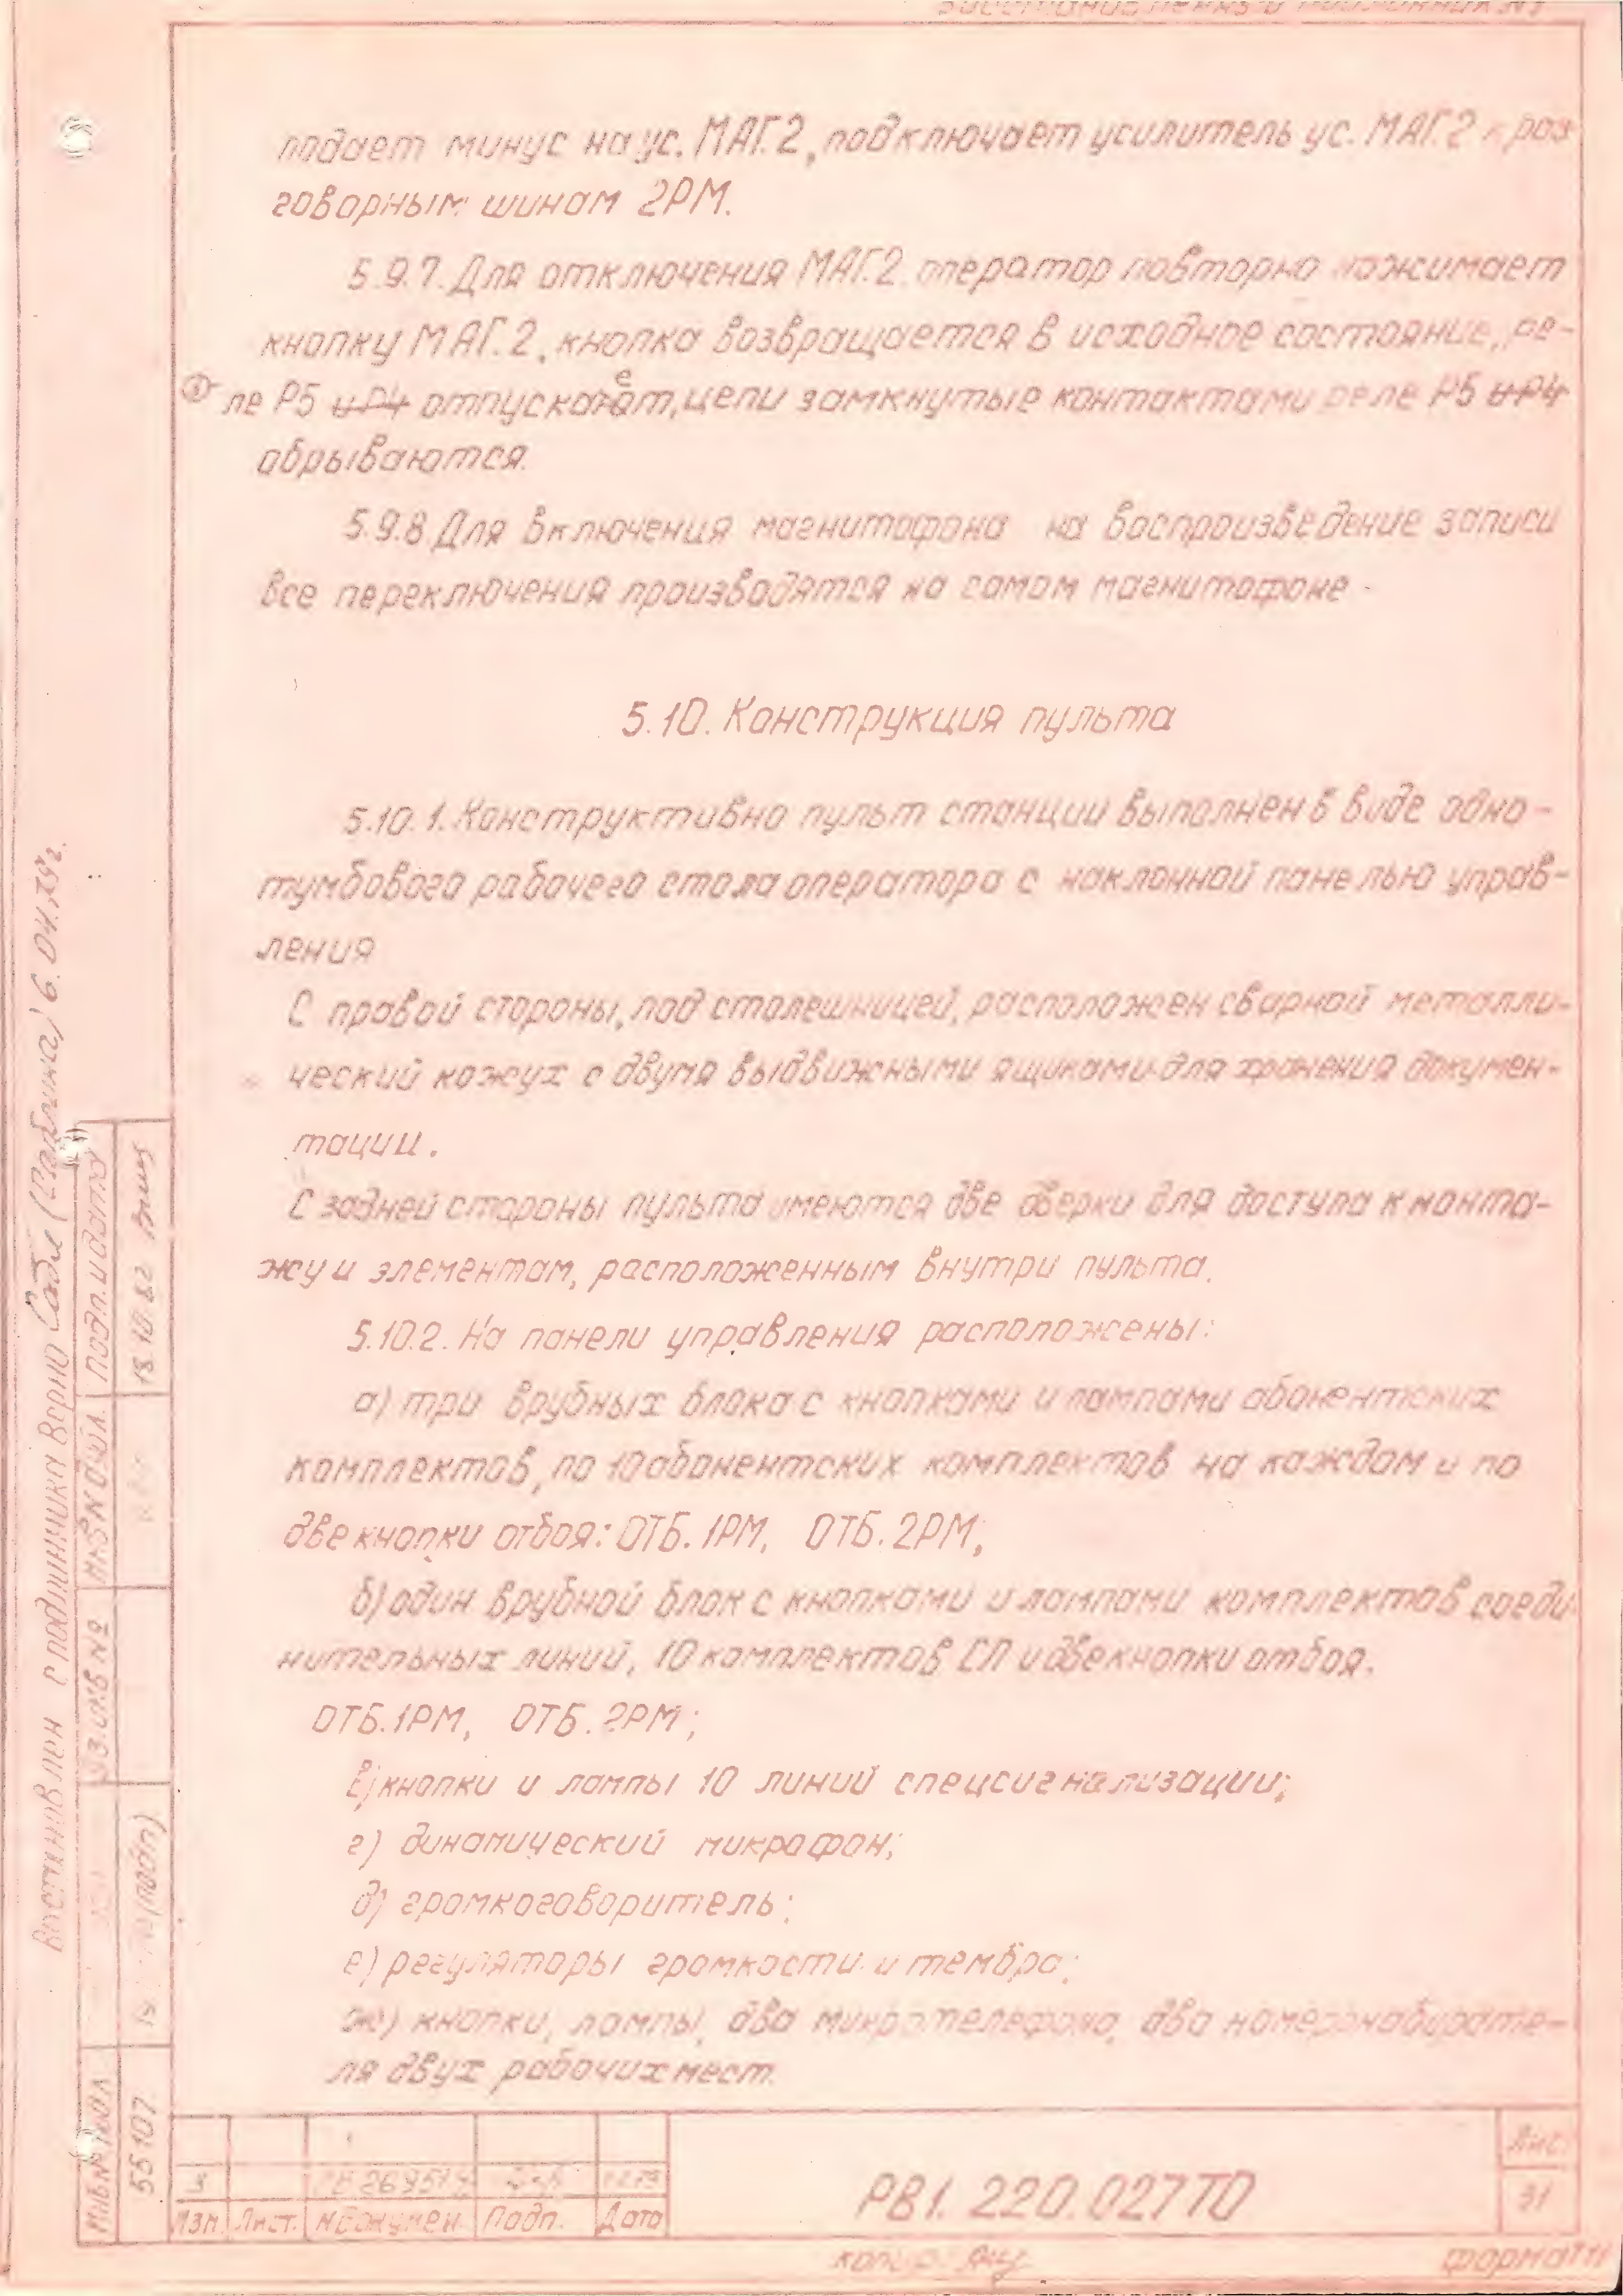 подает минус на ус. МАГ.2, подключает усилитель ус. МАГ.2 к раз-
говорным шинам 2РМ.
5.9.7. Для отключения МАГ.2 оператор повторно нажимает
кнопку МАГ.2, кнопка возвращается в исходное состояние, ре-
ле Р5 и Р4 отпускает, цепи замкнутые контактами реле Р5 и Р4
обрываются.
5.9.8 Для включения магнитофона на воспроизведение записи
все переключения производятся на самом магнитофоне.
5.10. Конструкция пульта
5.10.1. Конструктивно пульт станции выполнен в виде одно-
тумбового рабочего стола оператора с наклонной панелью управ-
ления
С правой стороны, под столешницей, расположен сварной металли-
ческий кожух с двумя выдвижными ящиками для хранения докумен-
тации.
С задней стороны пульта имеются две дверки для доступа к монта-
жу и элементам, расположенным внутри пульта.
5.10.2. На панели управления расположены:
а) три врубных блока с кнопками и лампами абонентских
комплектов, по 10 абонентских комплектов на каждом и по
две кнопки отбоя: ОТБ. 1РМ, ОТБ. 2РМ;
б) один врубной блок с кнопками и лампами комплектов соеди
нительных линий, 10 комплектов СЛ и две кнопки отбоя.
ОТБ.1РМ, ОТБ.2РМ;
в) кнопки и лампы 10 линий спецсигнализации;
г) динамический микрофон;
д) громкоговоритель;
е) регуляторы громкости и тембра;
ж) кнопки, лампы, два микротелефона, два номеронабирате-
ля двух рабочих мест.
Восстановлен с подлинника Верно 6.04.79г.
Подп. и дата
18.10.82
Инв № дубл.
Взам. инв №
Инв № подл
55107
3
Изм. Лист. № докумен Подп. Дата
РВ1.220.027ТО
Лис.
31
формат 11